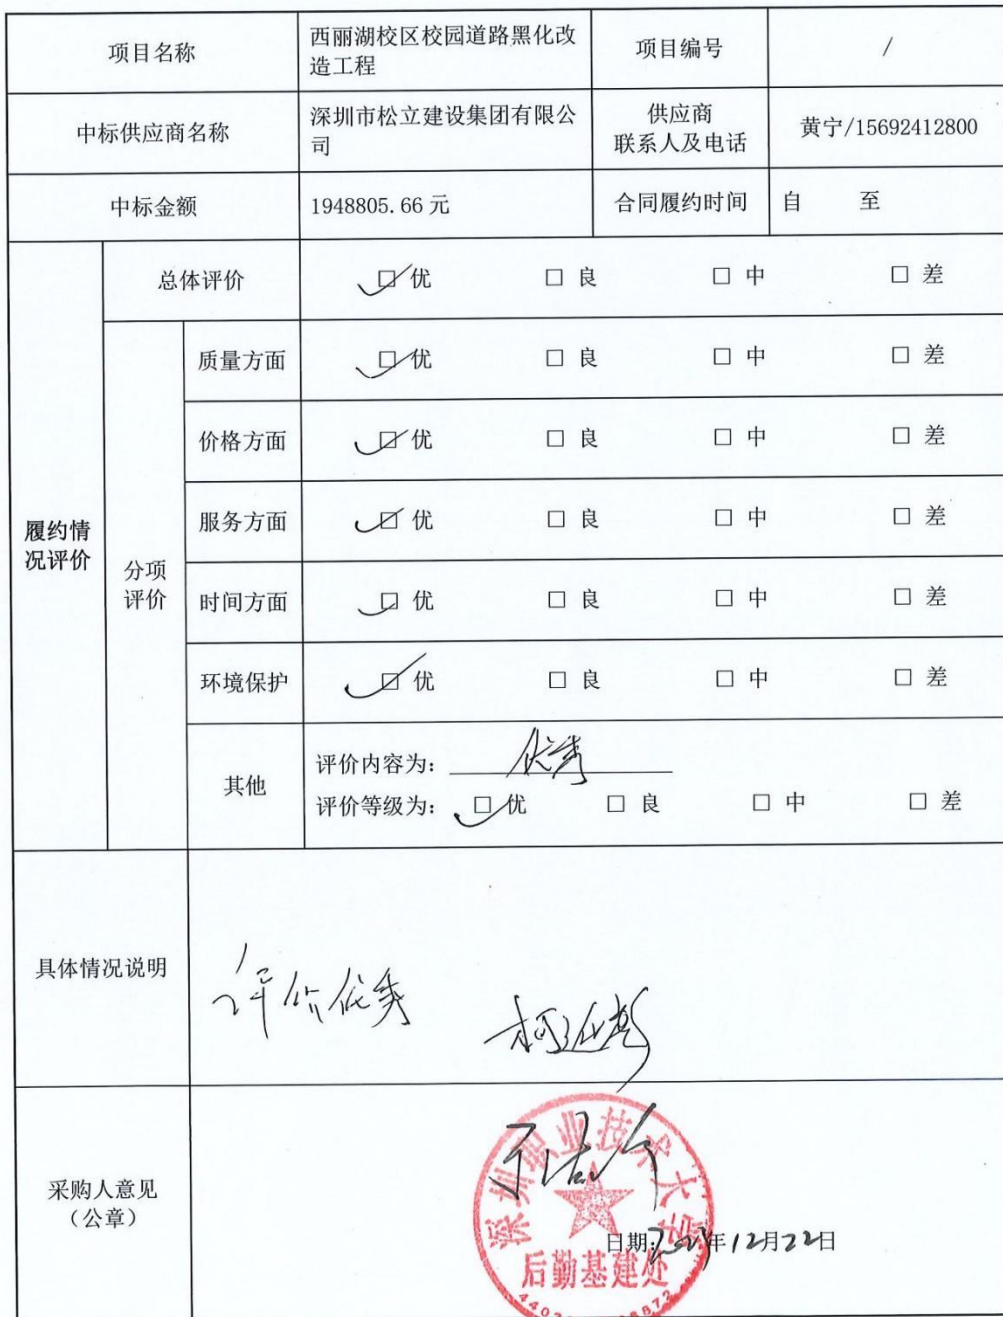 项目名称
西丽湖校区校园道路黑化改
造工程
项目编号
/
中标供应商名称
深圳市松立建设集团有限公
司
供应商
联系人及电话
黄宁/15692412800
中标金额
1948805.66 元
合同履约时间
自 至
履约情
况评价
总体评价
□ 优 □ 良 □ 中 □ 差
分项
评价
质量方面
□ 优 □ 良 □ 中 □ 差
价格方面
□ 优 □ 良 □ 中 □ 差
服务方面
□ 优 □ 良 □ 中 □ 差
时间方面
□ 优 □ 良 □ 中 □ 差
环境保护
□ 优 □ 良 □ 中 □ 差
其他
评价内容为: 优秀
评价等级为: □ 优 □ 良 □ 中 □ 差
具体情况说明
评价优秀
采购人意见
(公章)
深圳职业技术大学
后勤基建处
日期: 年12月22日